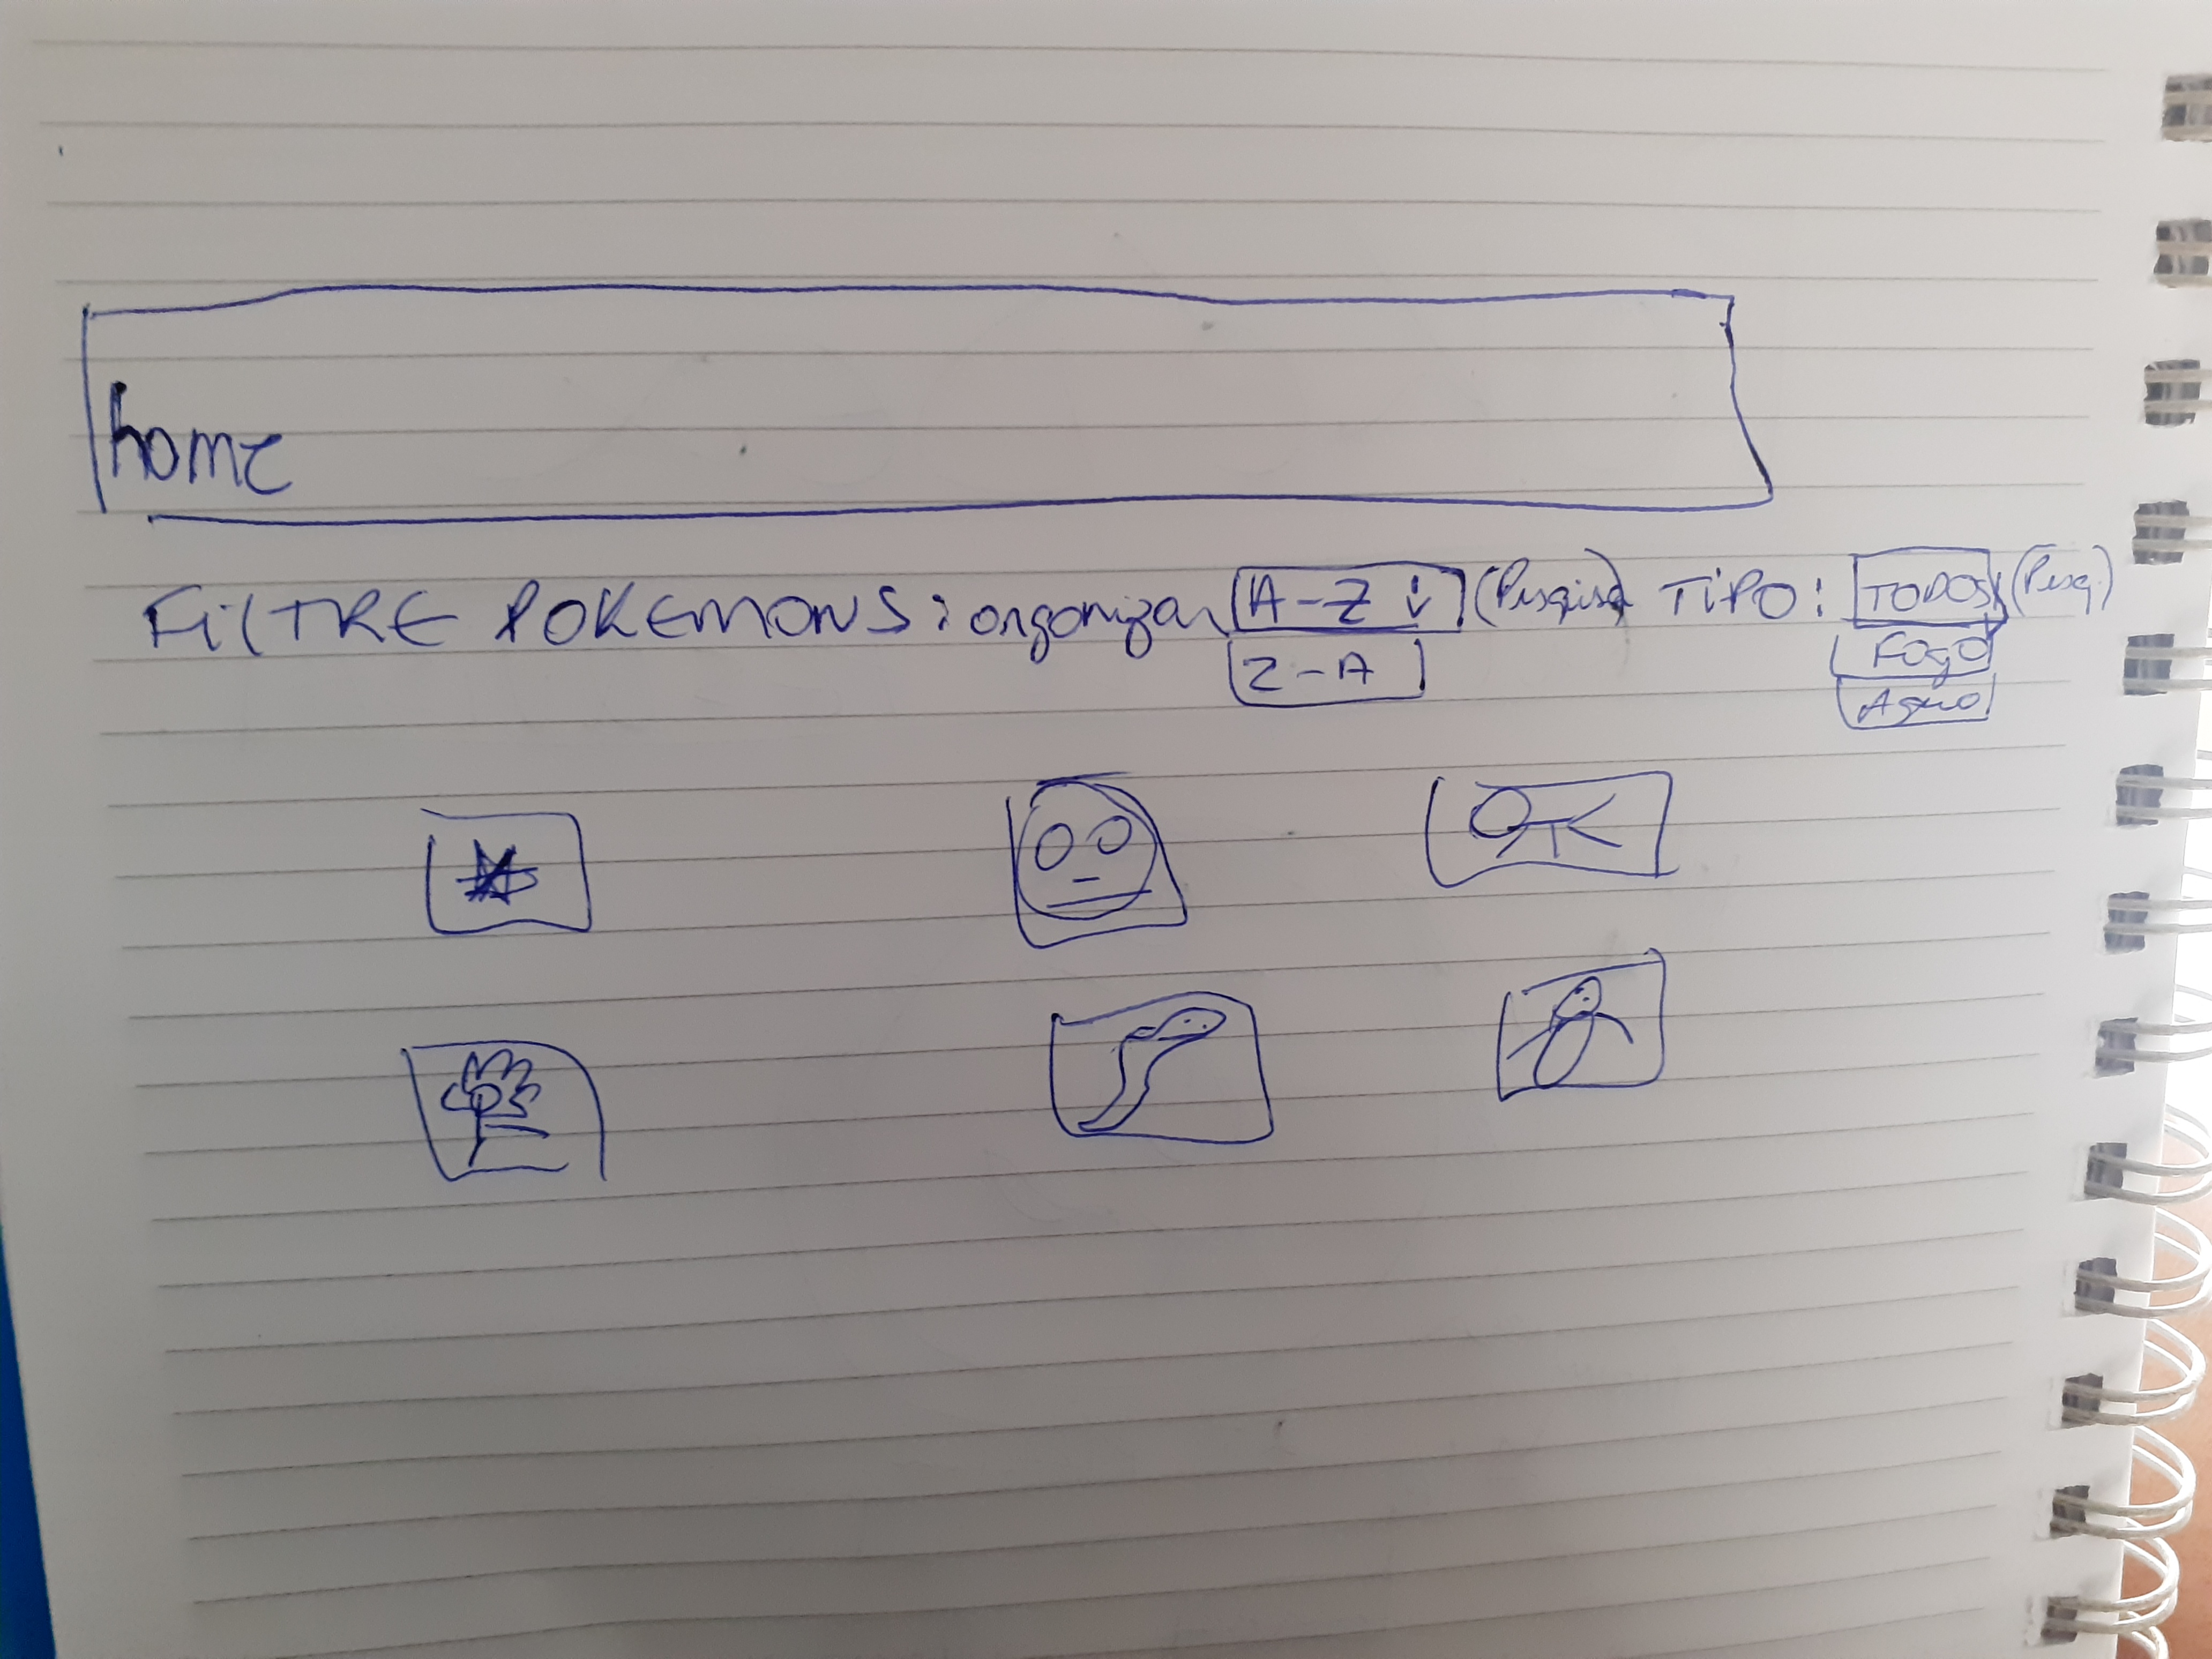 home
FiLTRE POKEMONS: organizar A-Z ↓ (Pesquisa) TiPO: TODOS (Pesq.)
Z-A Fogo
Agua